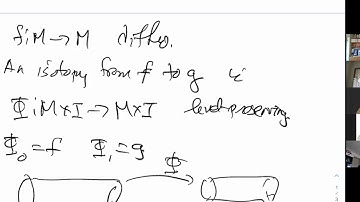 f: M → M diffeo.
An isotopy from f to g is
Φ: M×I → M×I level-preserving
Φ₀ = f Φ₁ = g
Φ